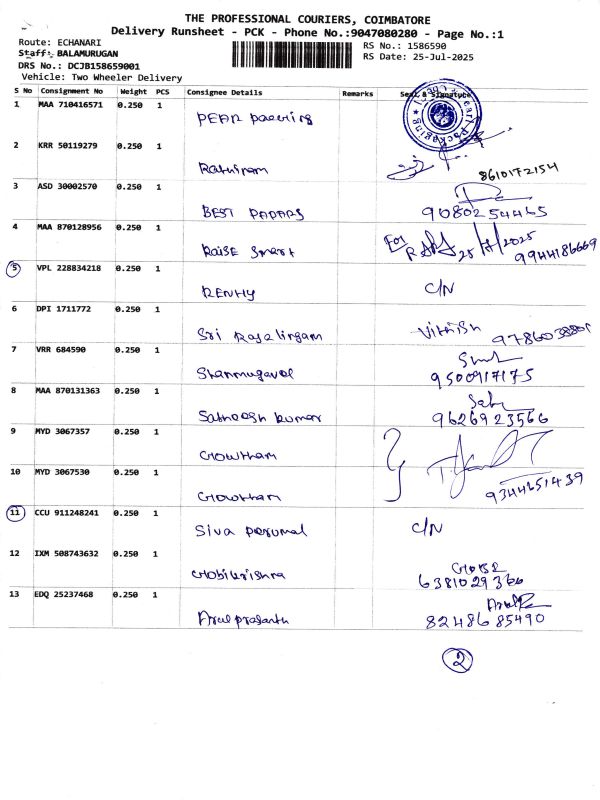 THE PROFESSIONAL COURIERS, COIMBATORE
Delivery Runsheet - PCK - Phone No.:9047080280 - Page No.:1
Route: ECHANARI
RS No.: 1586590
Staff: BALAMURUGAN
RS Date: 25-Jul-2025
DRS No.: DCJB158659001
Vehicle: Two Wheeler Delivery
S No Consignment No Weight PCS Consignee Details Remarks Seal & Signature
1 MAA 710416571 0.250 1 PEAR Packing
2 KRR 50119279 0.250 1 Rathinam 8610172154
3 ASD 30002570 0.250 1 BEST PAPARS 9080254465
4 MAA 870128956 0.250 1 RaiSE Smart For 25/7/2025 9944186669
5 VPL 228834218 0.250 1 RENHY C/N
6 DPI 1711772 0.250 1 Sri Rajalingam Vithish
7 VRR 684590 0.250 1 Shanmugavel 9500917175
8 MAA 870131363 0.250 1 Satheesh kumar 9626923566
9 MYD 3067357 0.250 1 Gowtham
10 MYD 3067530 0.250 1 Gowtham 9344251439
11 CCU 911248241 0.250 1 Siva perumal C/N
12 IXM 508743632 0.250 1 Gobikrishna 6381029366
13 EDQ 25237468 0.250 1 Arulprasanth 8248685490
2